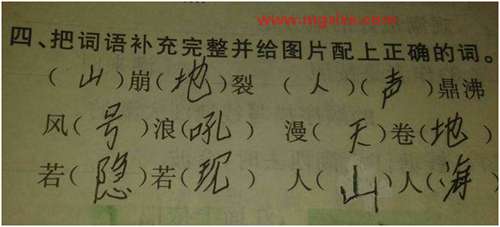 www.mgalxe.com
四、把词语补充完整并给图片配上正确的词。
(山)崩(地)裂 (人)(声)鼎沸
风(号)浪(吼) 漫(天)卷(地)
若(隐)若(现) 人(山)人(海)